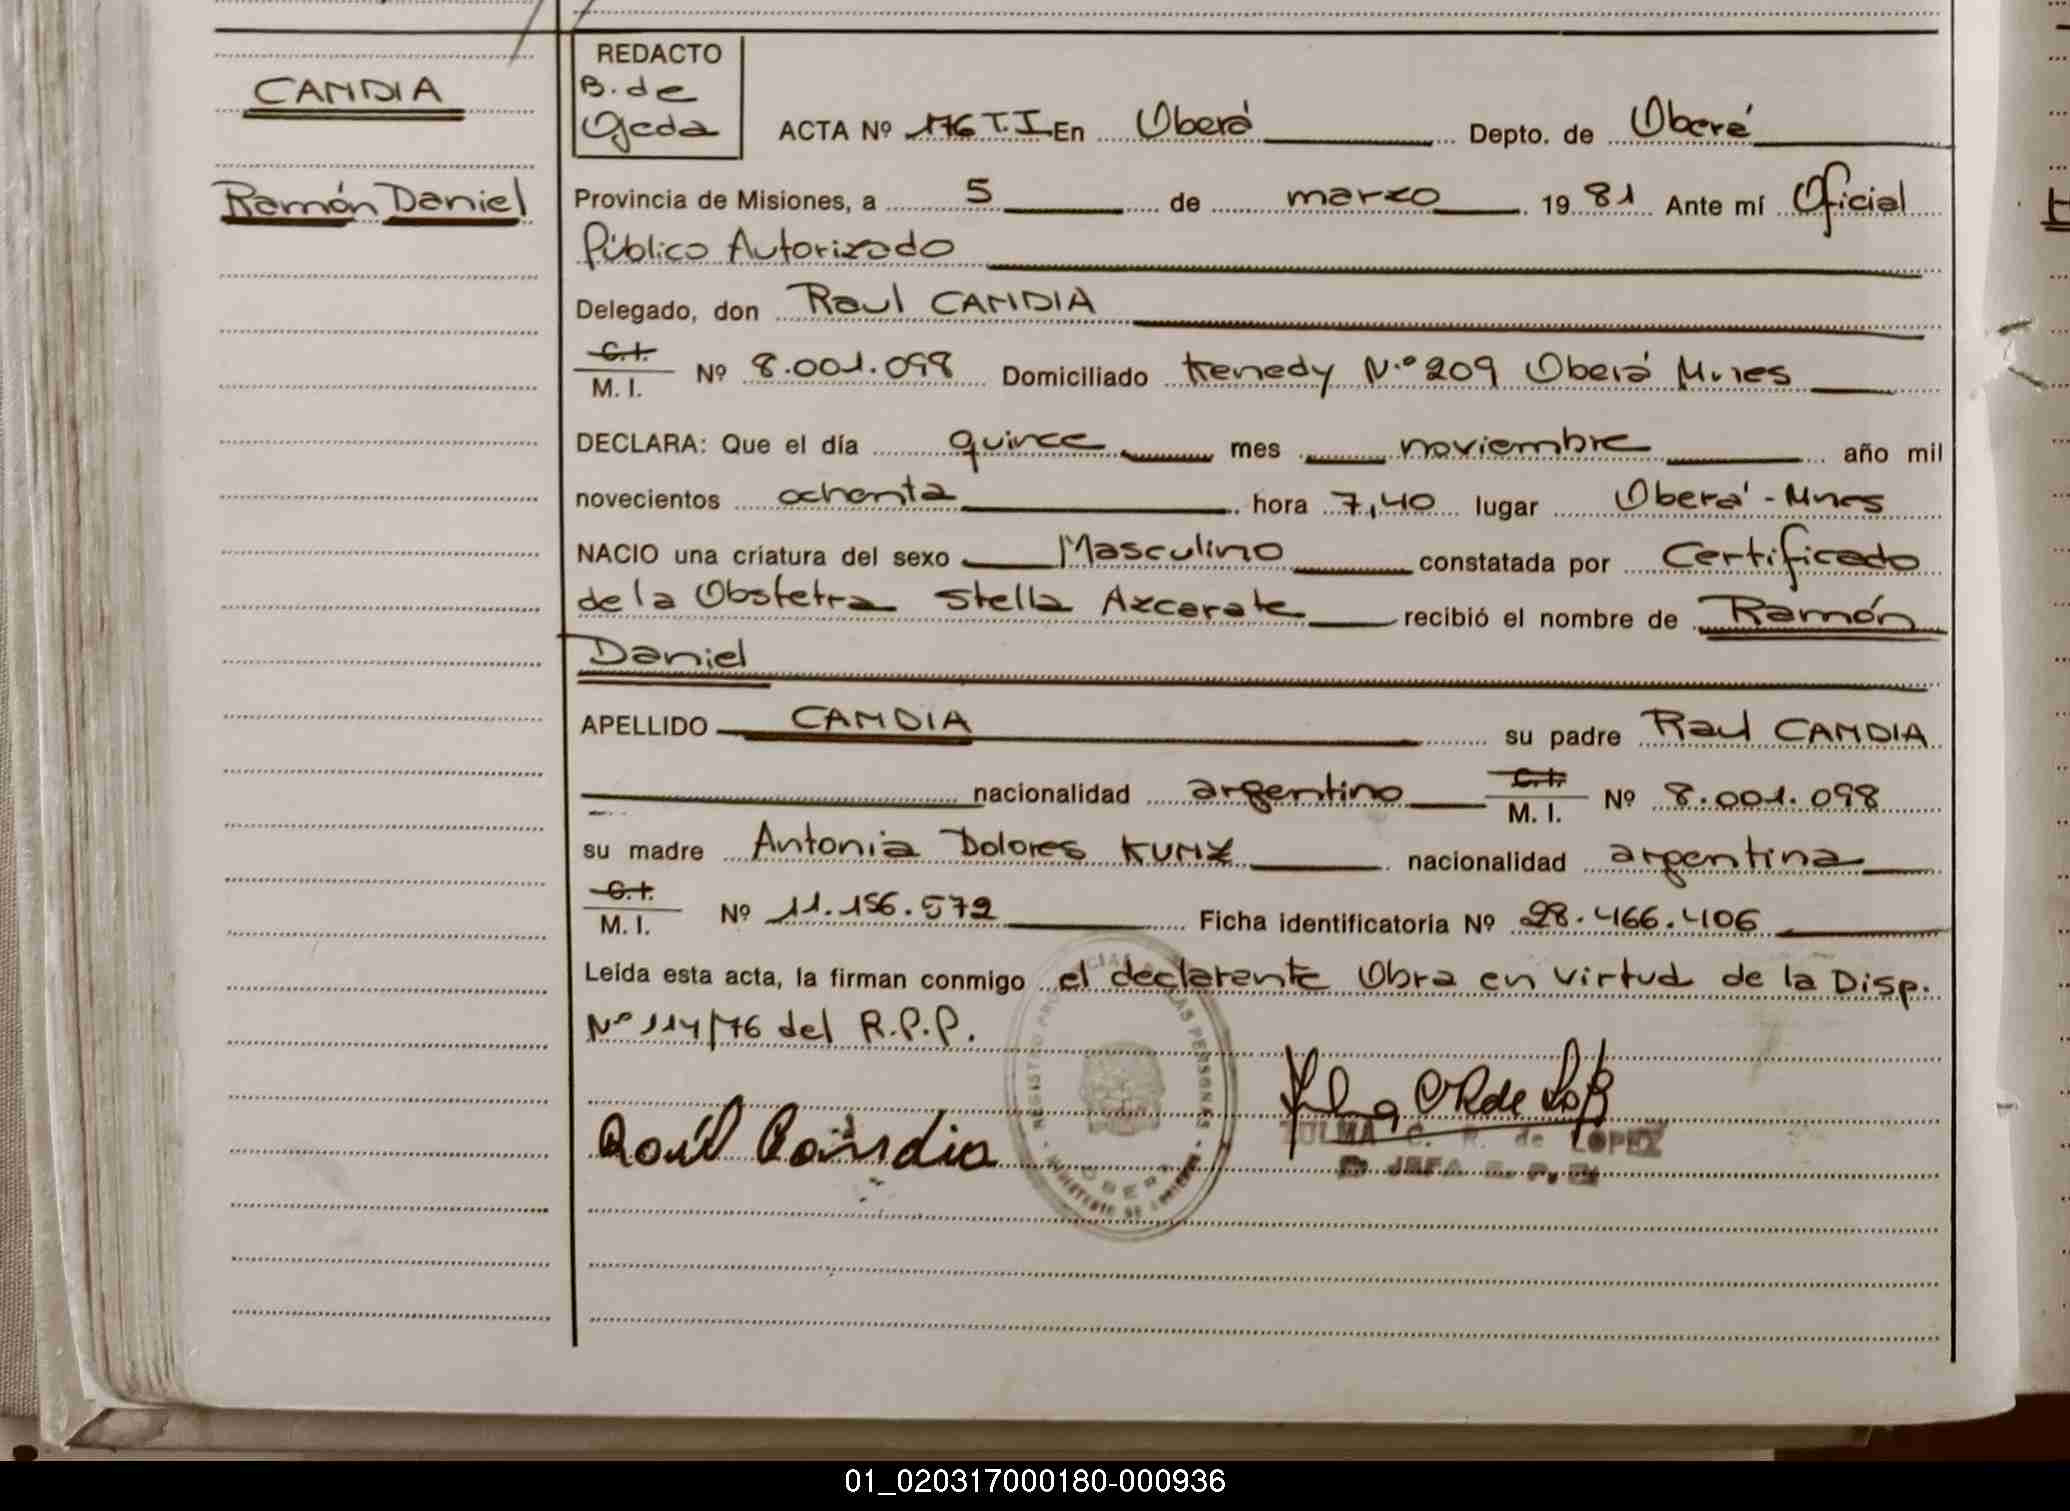 CANDIA
Ramón Daniel
REDACTO
B. de
Ojeda
ACTA Nº 176 T.I En Oberá Depto. de Oberá
Provincia de Misiones, a 5 de marzo 19 81 Ante mí Oficial
Público Autorizado
Delegado, don Raul CANDIA
C.I.
M. I. Nº 8.001.098 Domiciliado Kenedy N.º 209 Oberá Mnes
DECLARA: Que el día quince mes noviembre año mil
novecientos ochenta hora 7,40 lugar Oberá - Mnes
NACIO una criatura del sexo Masculino constatada por Certificado
de la Obstetra Stella Azcarate recibió el nombre de Ramón
Daniel
APELLIDO CANDIA su padre Raul CANDIA
nacionalidad argentino C.I. M. I. Nº 8.001.098
su madre Antonia Dolores KUNZ nacionalidad argentina
C.I.
M. I. Nº 11.156.572 Ficha identificatoria Nº 28.466.406
Leída esta acta, la firman conmigo el declarente Obra en virtud de la Disp.
Nº 114/76 del R.P.P.
Raúl Candia
REGISTRO PROVINCIAL DE LAS PERSONAS
OBERA
ZULMA C. R. de LOPEZ
JEFA
01_020317000180-000936